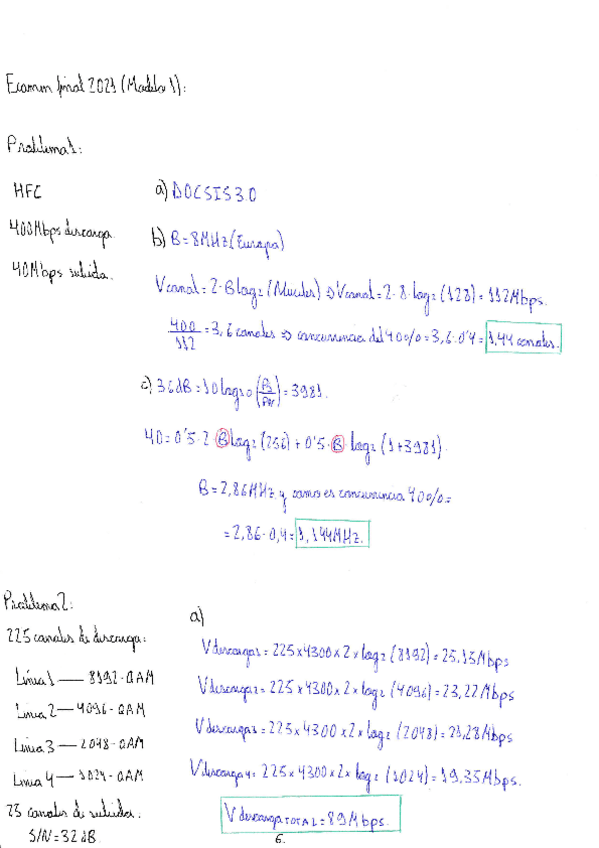 Examen final 2021 (Modelo 1):
Problema 1:
HFC
400Mbps descarga
40Mbps subida.
a) DOCSIS 3.0
b) B = 8MHz (Europa)
Vcanal = 2·B log₂ (Niveles) ⇒ Vcanal = 2·8·log₂ (128) = 112Mbps.
400/112 = 3,6 canales ⇒ concurrencia del 40% = 3,6·0'4 = 1,44 canales.
c) 36dB = 10 log10 (Ps/Pn) = 3981.
40 = 0'5·2·B log₂ (256) + 0'5·B·log₂ (1+3981).
B = 2,86MHz y como es concurrencia 40% =
= 2,86·0,4 = 1,144MHz.
Problema 2:
225 canales de descarga:
Línea 1 — 8192-QAM
Línea 2 — 4096-QAM
Línea 3 — 2048-QAM
Línea 4 — 1024-QAM
23 canales de subida.
S/N = 32dB.
a)
Vdescarga1 = 225x4300x2xlog₂ (8192) = 25,15Mbps
Vdescarga2 = 225x4300x2xlog₂ (4096) = 23,22Mbps
Vdescarga3 = 225x4300x2xlog₂ (2048) = 21,28Mbps
Vdescarga4 = 225x4300x2xlog₂ (1024) = 19,35Mbps.
VdescargaTOTAL = 89Mbps.
6.